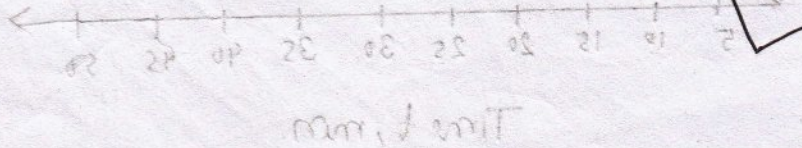 5 10 15 20 25 30 35 40 45 50
Time t, min